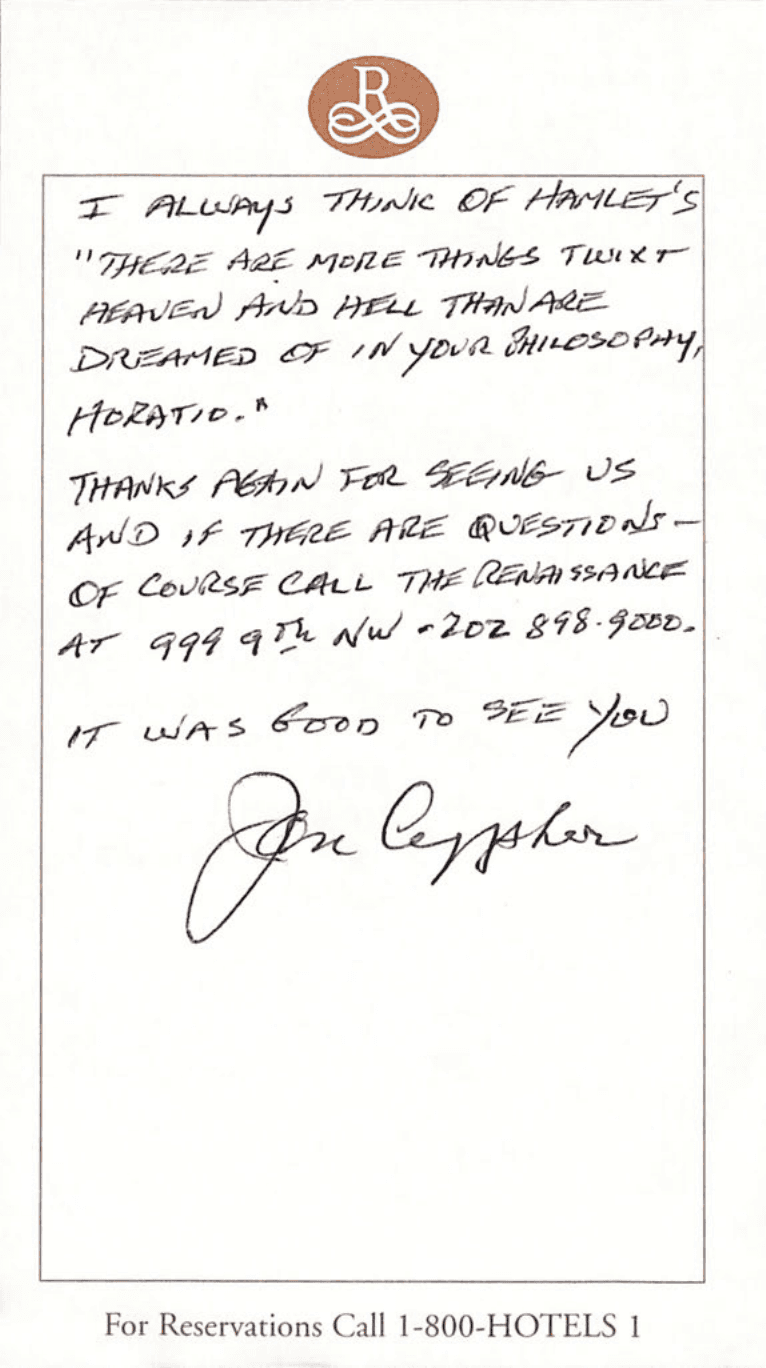 R
I ALWAYS THINK OF HAMLET'S
"THERE ARE MORE THINGS TWIXT
HEAVEN AND HELL THAN ARE
DREAMED OF IN YOUR PHILOSOPHY,
HORATIO."
THANKS AGAIN FOR SEEING US
AND IF THERE ARE QUESTIONS—
OF COURSE CALL THE RENAISSANCE
AT 999 9th NW - 202 898-9000.
IT WAS GOOD TO SEE YOU
Jon Cypher
For Reservations Call 1-800-HOTELS 1